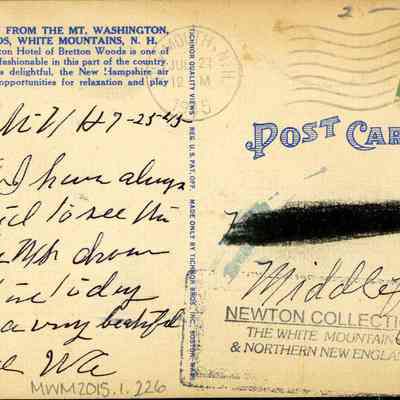 FROM THE MT. WASHINGTON,
DS, WHITE MOUNTAINS, N. H.
ton Hotel of Bretton Woods is one of
fashionable in this part of the country.
s delightful, the New Hampshire air
opportunities for relaxation and play
N H 7-25-45
I have always
to see this
drove
today
a very beautiful
We
MWM2015.1.226
TICHNOR QUALITY VIEWS
REG. U.S. PAT. OFF. MADE ONLY BY TICHNOR BROS. INC., BOSTON, MASS.
MOUTH, N.H.
12 M
2 -
POST CAR
Middle
NEWTON COLLECTIO
THE WHITE MOUNTAIN
& NORTHERN NEW ENGLA